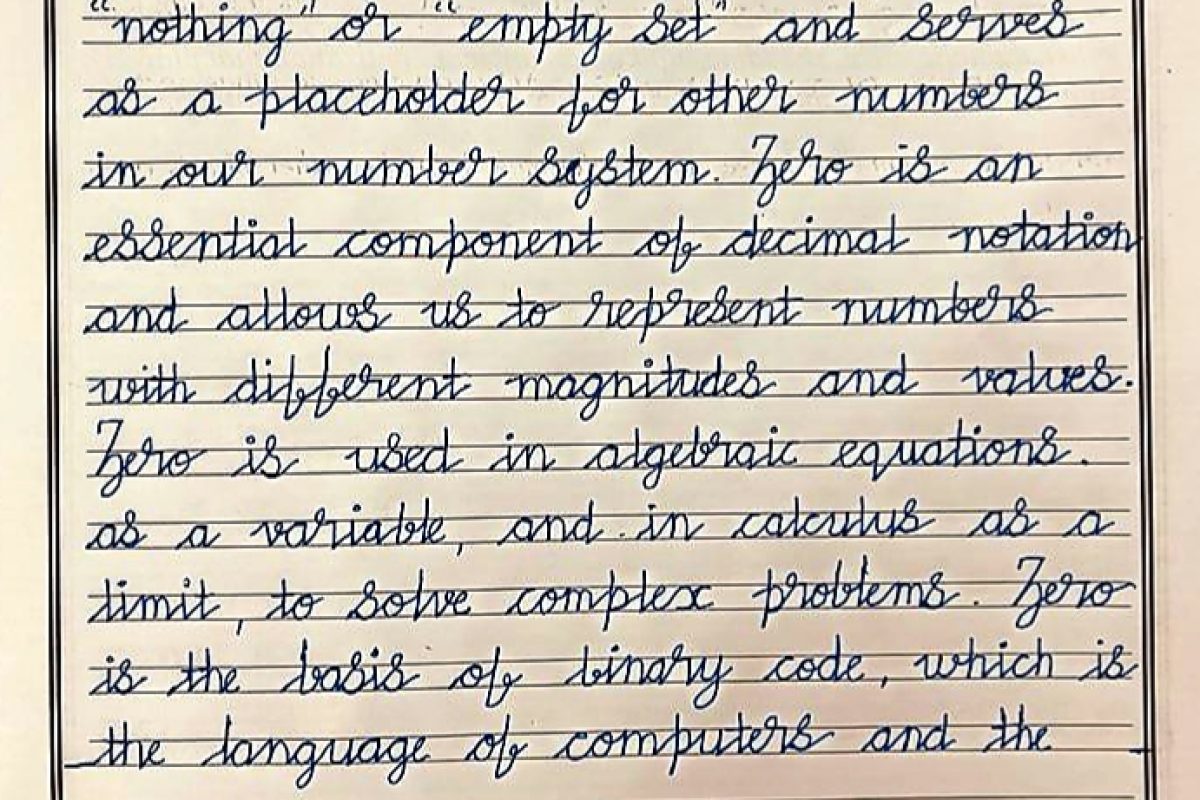 "nothing" or "empty set" and serves
as a placeholder for other numbers
in our number system. Zero is an
essential component of decimal notation
and allows us to represent numbers
with different magnitudes and values.
Zero is used in algebraic equations.
as a variable, and in calculus as a
limit, to solve complex problems. Zero
is the basis of binary code, which is
the language of computers and the